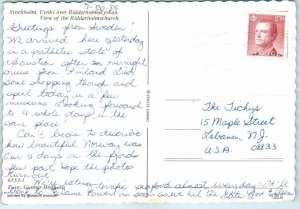 7-20-85
Stockholm. Utsikt över Riddarholmskyrkan.
View of the Riddarholmschurch.
Greetings from Sweden!
We arrived here yesterday
in a pathetic state of
exhaustion after an overnight
cruise from Finland. Did
some shopping though and
spent today in a few
museums. Looking forward
to 4 whole days in the
same place!
Can't begin to describe
how beautiful Norway was.
Our 4 days on the fjords
few past. Hope the photo
turn out.
We're eating seafood almost everyday
6353-1
Foto: Gunnar
printed by
SVERIGE
2.50
The Tichys
15 Maple Street
Lebanon, N.J.
U.S.A. 08833